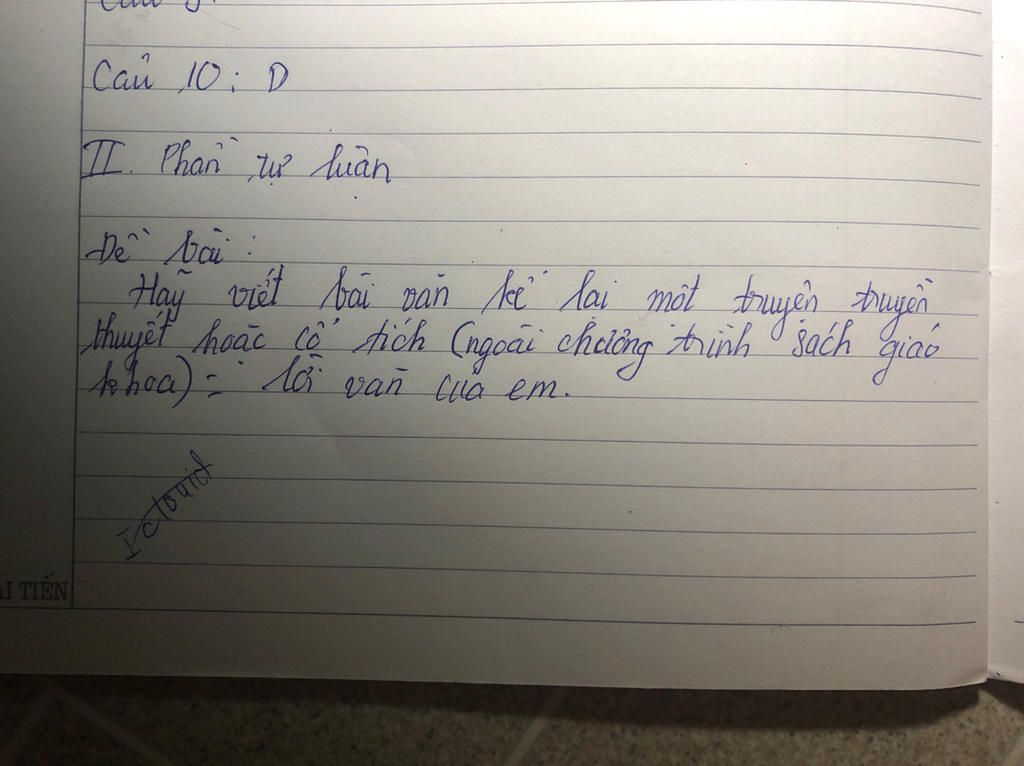 Câu 10 : D
II. Phần tự luận
Đề bài :
Hãy viết bài văn kể lại một truyện truyền
thuyết hoặc cổ tích (ngoài chương trình sách giáo
khoa) = lời văn của em.
TIẾN